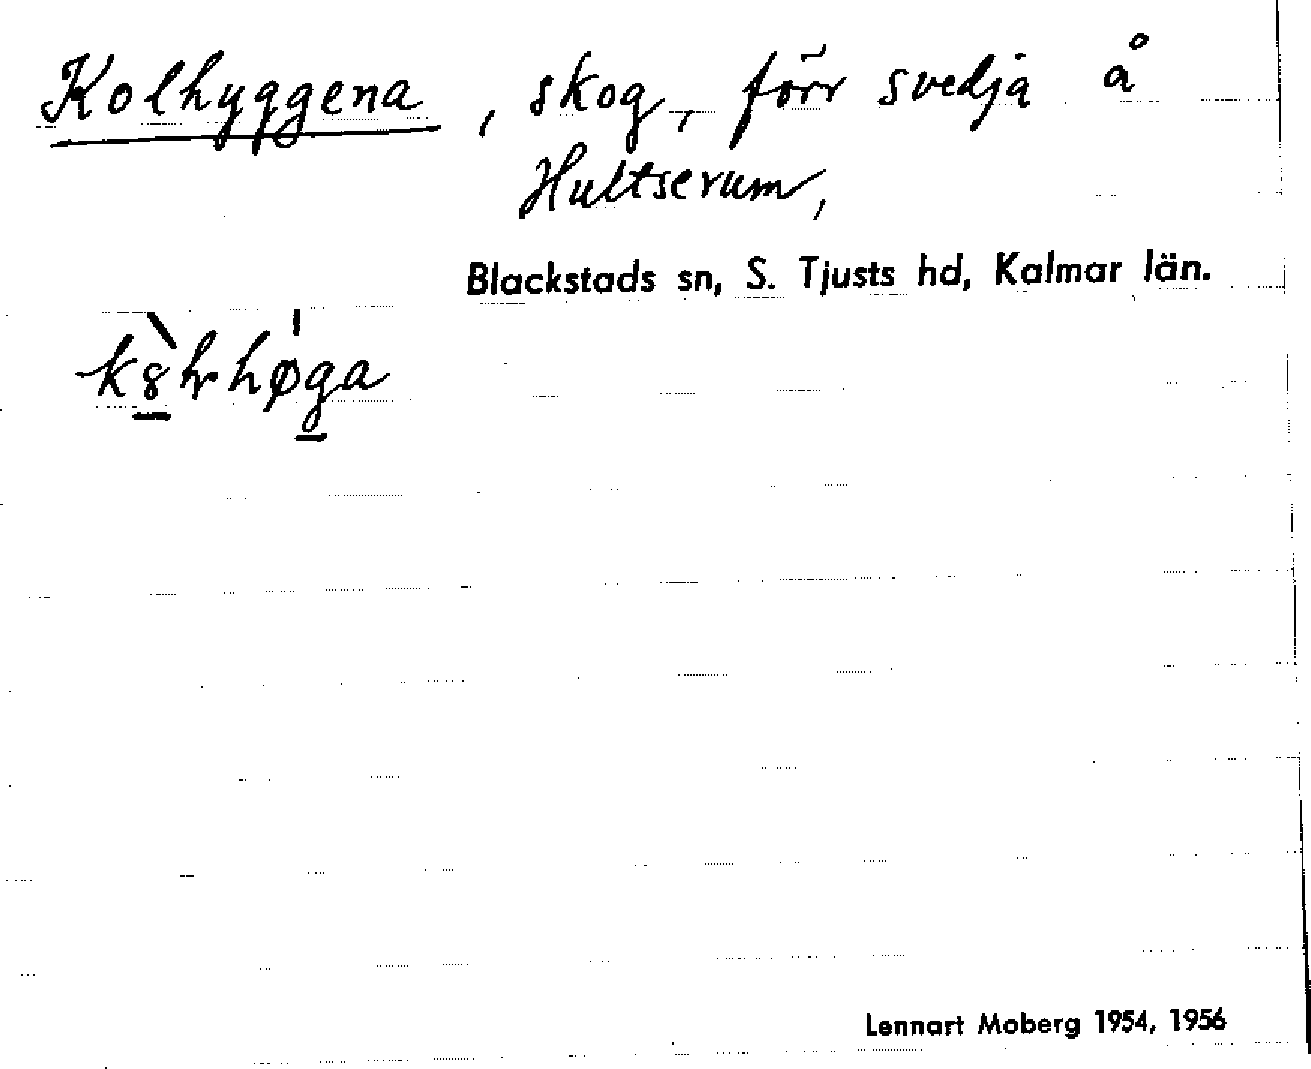 Kolhyggena, skog, förr svedja å
Hultserum,
Blackstads sn, S. Tjusts hd, Kalmar län.
Lennart Moberg 1954, 1956